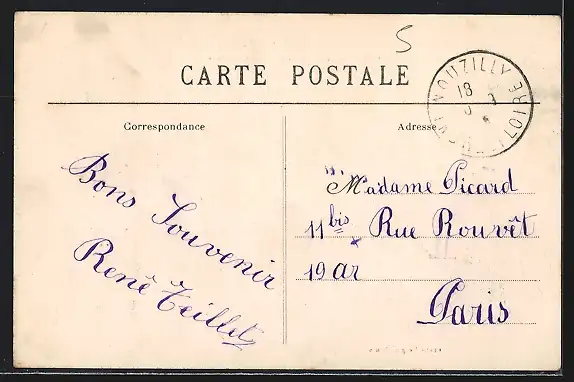 5
CARTE POSTALE
NOUZILLY
18
Correspondance
Adresse
Bons Souvenir
René Teillet
Madame Picard
11 bis Rue Rouvêt
19 ar
Paris